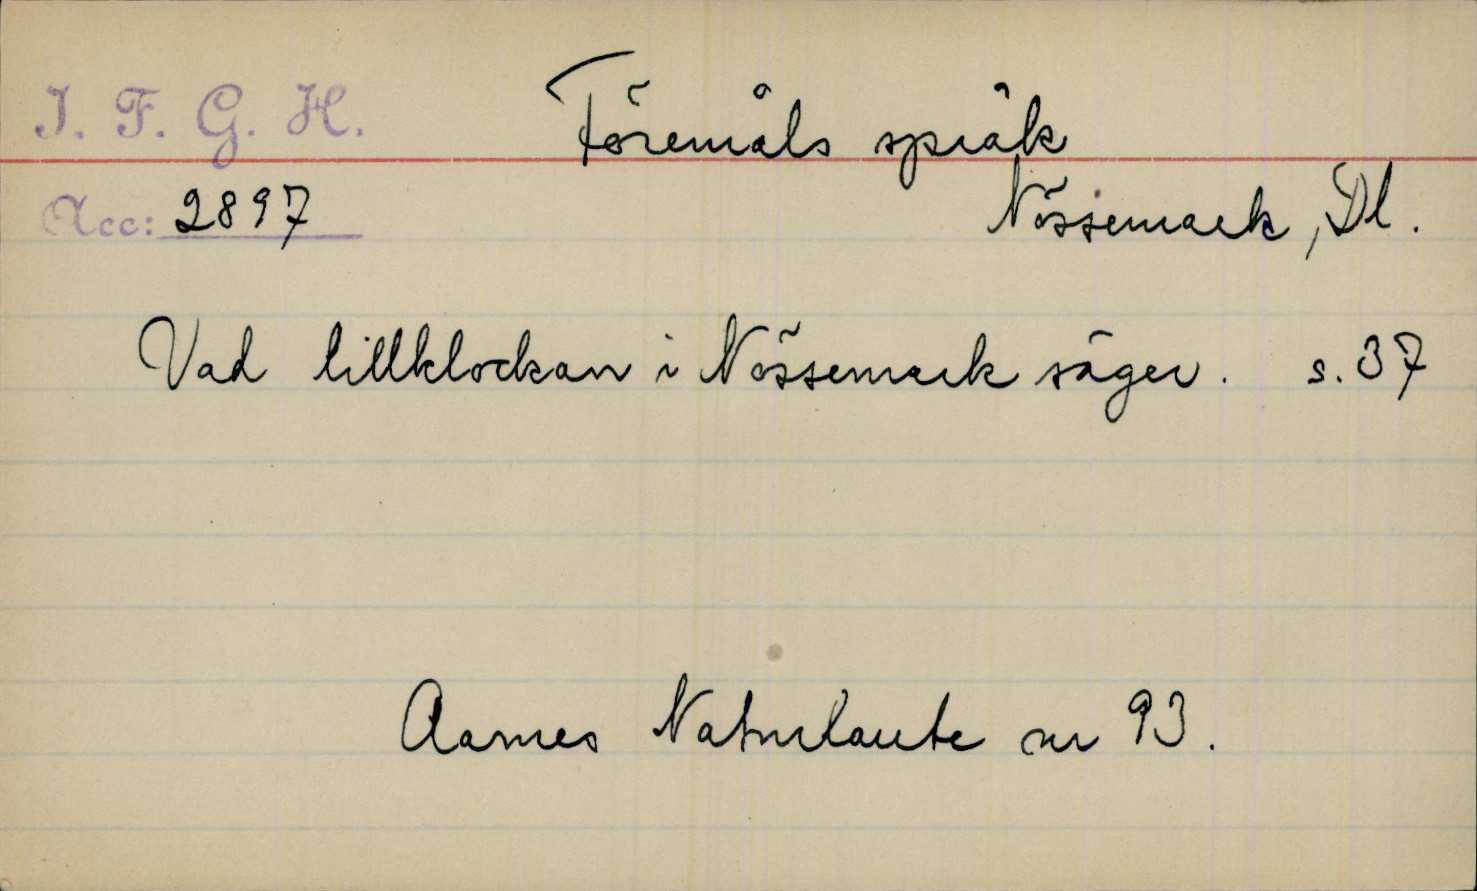 I. F. G. H.
Föremåls språk
Acc: 2897
Nössemark, Dl.
Vad lillklockan i Nössemark säger. s. 37
Aarnes Naturlaute nr 93.